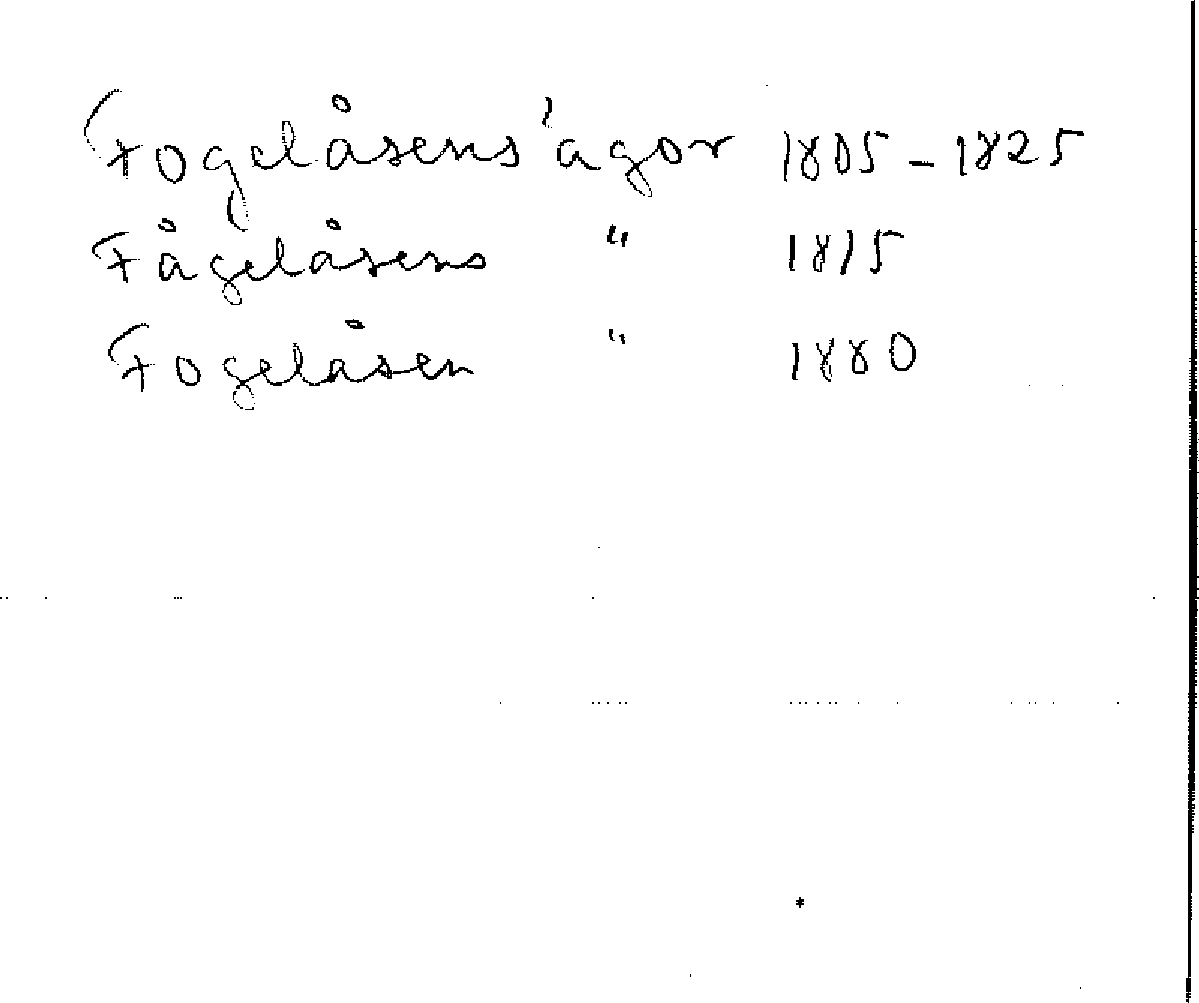 Fogelåsens ägor 1805-1825
Fågelåsens " 1815
Fogelåsen " 1880